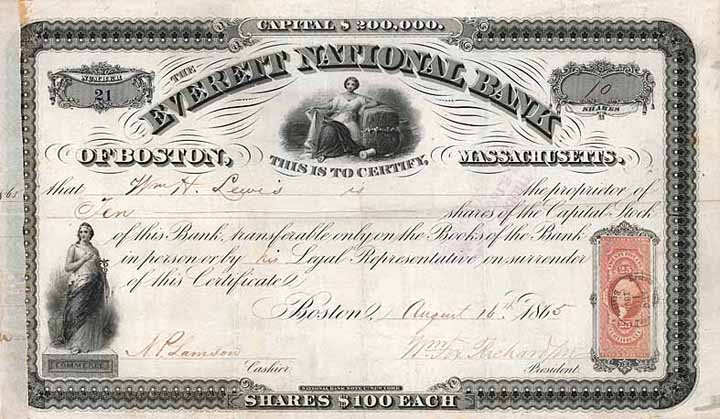 CAPITAL $200,000.
NUMBER
21
THE
EVERETT NATIONAL BANK
10
SHARES
OF BOSTON, THIS IS TO CERTIFY, MASSACHUSETTS.
that Wm H. Lewis is the proprietor of
Ten shares of the Capital Stock
of this Bank, transferable only on the Books of the Bank
in person or by his Legal Representative on surrender
of this Certificate.
Boston, August 16th 1865
N. P. Lamson Cashier. Wm Fox Richardson President.
COMMERCE
25 25
NATIONAL BANK NOTE CO. NEW YORK
SHARES $100 EACH